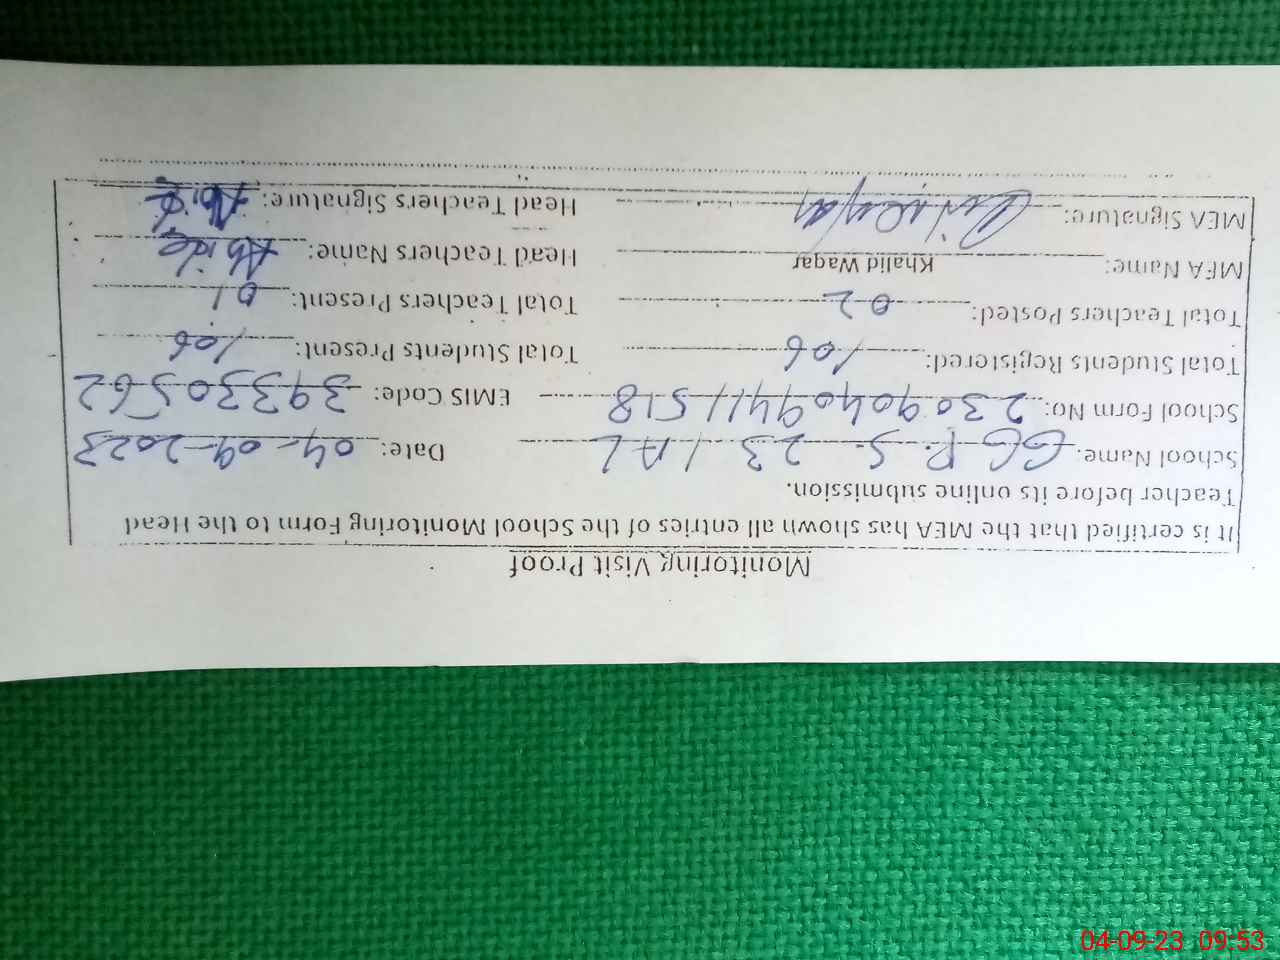 Monitoring Visit Proof
It is certified that the MEA has shown all entries of the School Monitoring Form to the Head
Teacher before its online submission.
School Name: GGPS. 23/AL Date: 04-09-2023
School Form No: 2309040941518 EMIS Code: 39330562
Total Students Registered: 106 Total Students Present: 106
Total Teachers Posted: 02 Total Teachers Present: 01
MEA Name: Khalid Waqar Head Teachers Name: Abida
MEA Signature: Head Teachers Signature: Abida
04-09-23 09:53